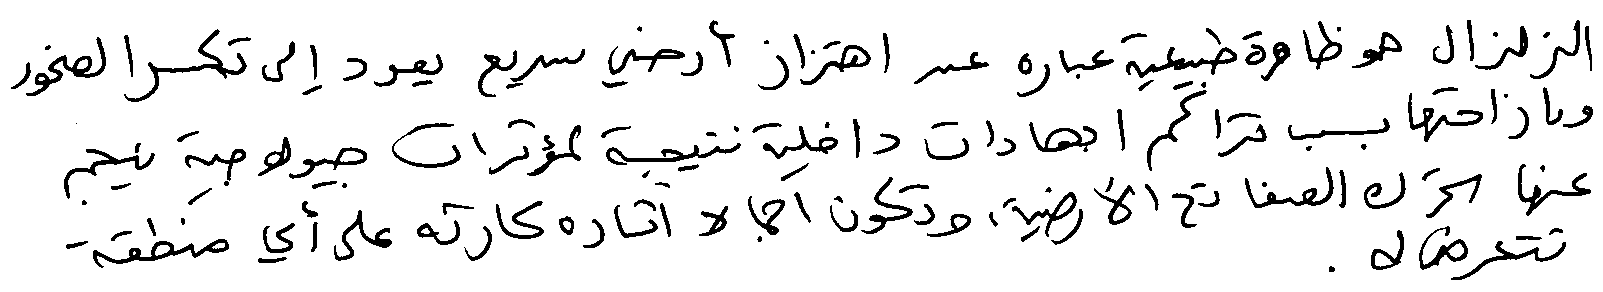 الزلزال هو ظاهرة طبيعية عباره عن اهتزاز أرضي سريع يعود إلى تكسر الصخور
وبازاحتها بسبب تراكم اجهادات داخلية نتيجة لمؤثرات جيولاجية ينجم
عنها تحرك الصفائح الأرضية، وتكون اجمالا اثاره كارثه على أي منطقة
تتعرض له .